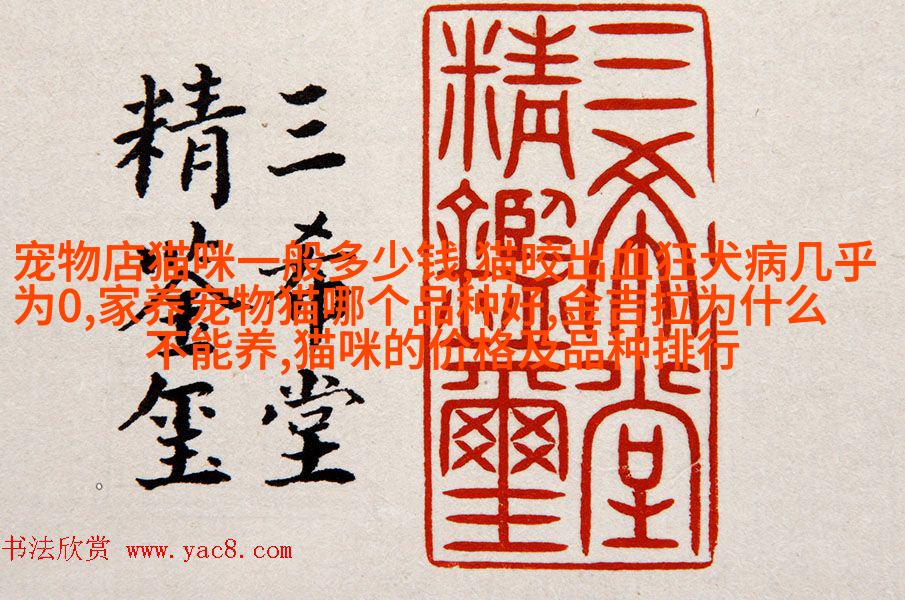 三希堂
精鉴玺
三希堂
精鑑璽
宠物店猫咪一般多少钱,猫咬出血狂犬病几乎
为0,家养宠物猫哪个品种好,金吉拉为什么
不能养,猫咪的价格及品种排行
书法欣赏 www.yac8.com